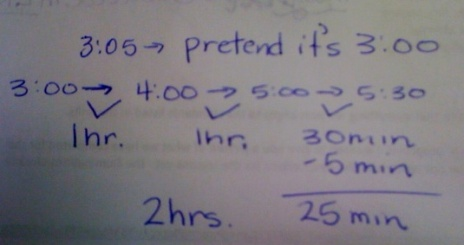 3:05→ pretend it's 3:00
3:00→ 4:00 → 5:00 → 5:30
1hr. 1hr. 30min
-5 min
2hrs. 25 min